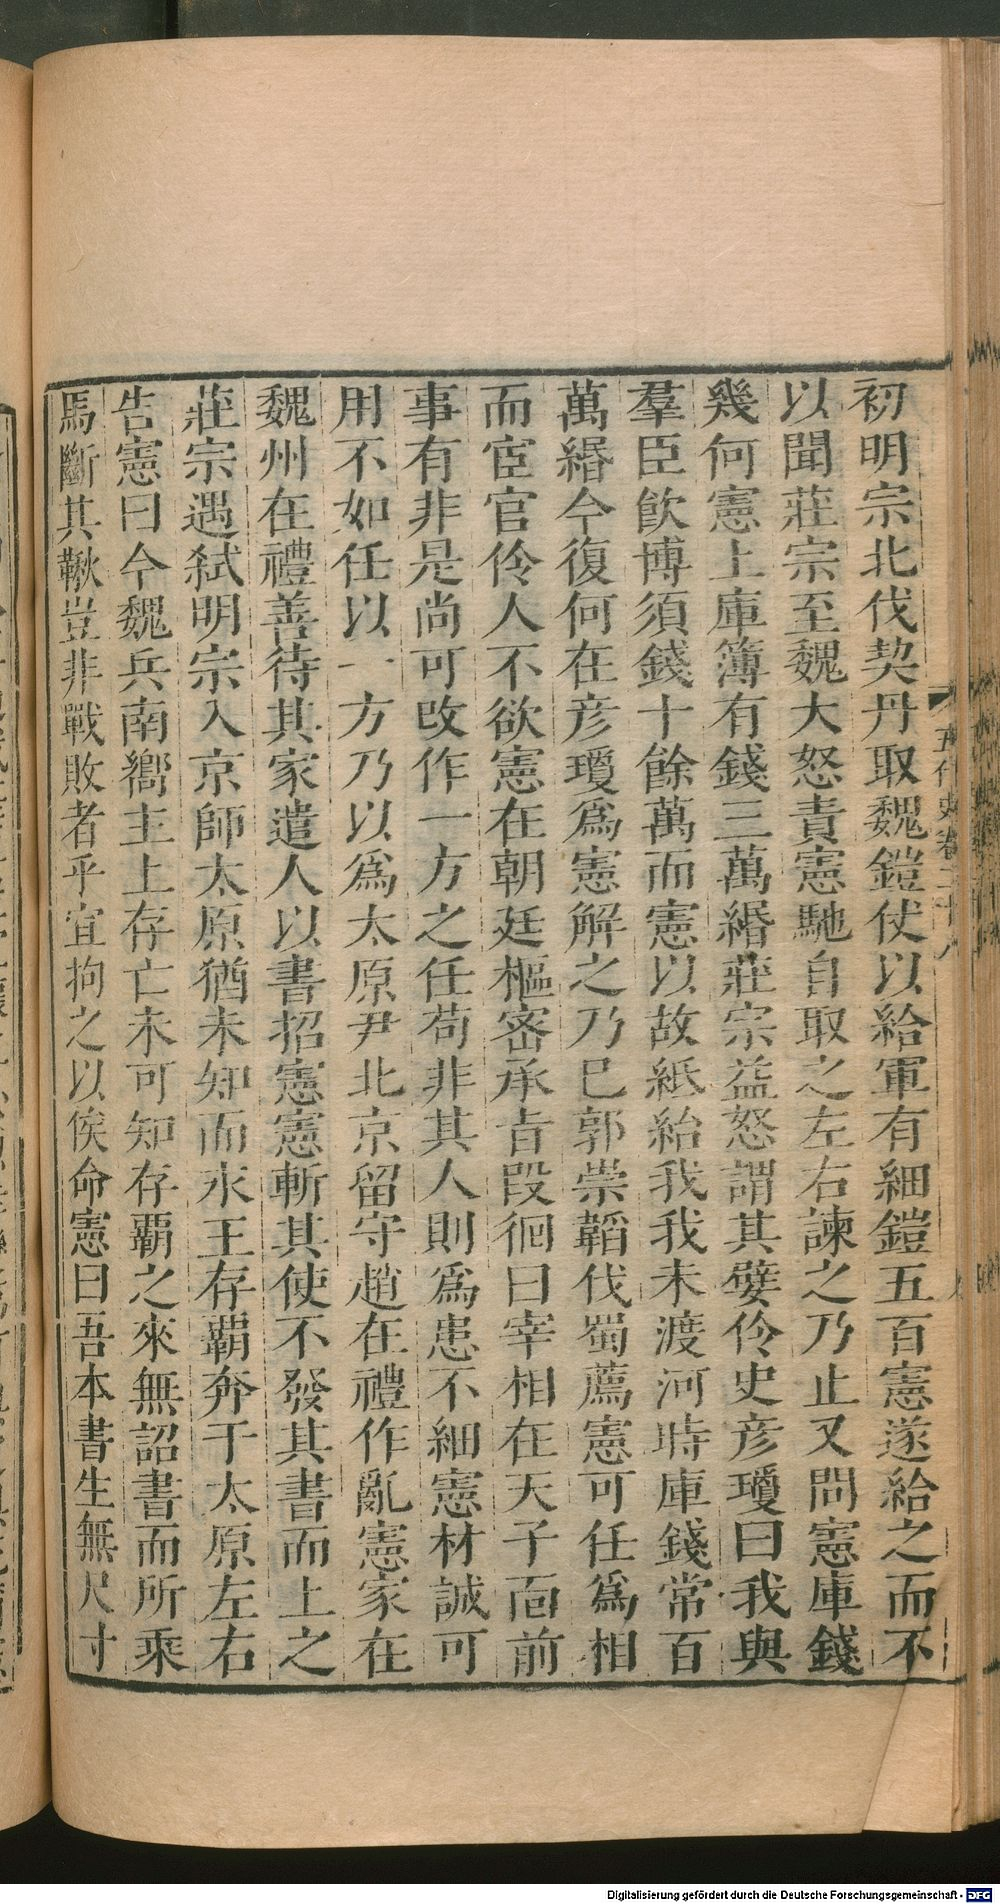 初明宗北伐契丹取魏鎧仗以給軍有細鎧五百憲遂給之而不
以聞莊宗至魏大怒責憲馳自取之左右諫之乃止又問憲庫錢
幾何憲上庫簿有錢三萬緡莊宗益怒謂其嬖伶史彦瓊曰我與
羣臣飲博須錢十餘萬而憲以故紙給我我未渡河時庫錢常百
萬緡今復何在彦瓊爲憲解之乃已郭崇韜伐蜀薦憲可任爲相
而宦官伶人不欲憲在朝廷樞密承旨段徊曰宰相在天子面前
事有非是尚可改作一方之任苟非其人則爲患不細憲材誠可
用不如任以一方乃以爲太原尹北京留守趙在禮作亂憲家在
魏州在禮善待其家遣人以書招憲憲斬其使不發其書而上之
莊宗遇弑明宗入京師太原猶未知而永王存霸奔于太原左右
告憲曰今魏兵南嚮主上存亡未可知存霸之來無詔書而所乘
馬斷其鞦豈非戰敗者乎宜拘之以俟命憲曰吾本書生無尺寸
五代史卷二十八
Digitalisierung gefördert durch die Deutsche Forschungsgemeinschaft - DFG